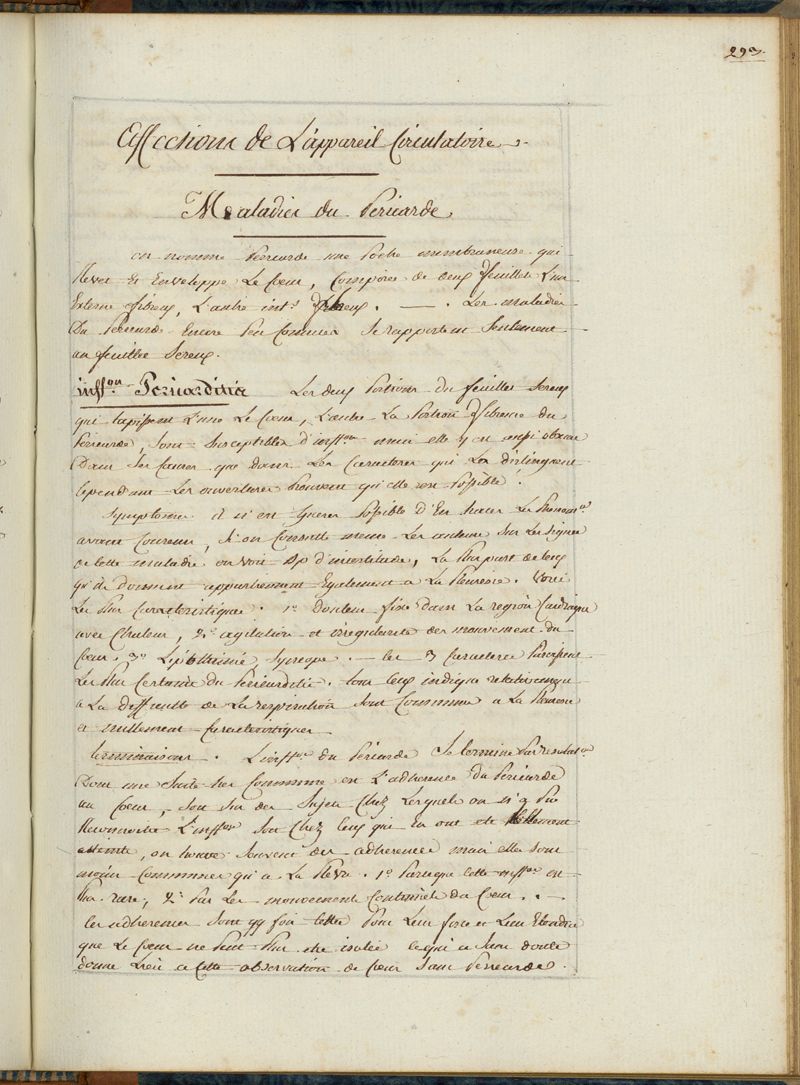 293.
Affections de L'appareil Circulatoire
Maladies du Pericarde
on nomme Pericarde une Poche membraneuse qui
Revet et Enveloppe Le Coeur, Composée de deux feuillets L'un
Externe fibreux, L'autre int.e Sereux. — . Les maladies
Du Pericarde Encore Peu Connues Se rapportent Seulement
au feuillet Sereux.
inff.on Pericarditis Les deux Portions du feuillet Sereux
qui tapissent L'une Le Coeur, L'autre La Portion fibreuse du
Pericarde, sont Susceptibles d'inff.on mais elle y est aussi obscure
Dans Ses Causes que dans Les Caracteres qui La distinguent
Cependant Les ouvertures Prouvent qu'elle est Possible.
Symptomes il n'est guere Possible d'En tracer Les
avant Coureurs, Si on Consulte même Les auteurs Sur Les Signes
de Cette maladie on voit d'incertitude, La Plus part de Ceux
qu'ils Donnent appartiennent Egalement a La Pleuresie. Voici
Les Plus Caracteristiques. 1.o Douleur fixe Dans La region Cardiaque
avec Chaleur, 2.o agitation et irregularité des mouvements du
Coeur. 3.o Lipothimie, Syncope. — Ces 3 Caracteres Paroissent
Les Plus Certains du Pericarditis. tous Ceux indiqués relativement
a La difficulté de La respiration Sont Communs a La Pleuresie
et nullement Caracteristiques
terminaisons. L'inff.on du Pericarde Se termine Par
Dont une Suite tres Commune est L'adherence Du Pericarde
au Coeur, Soit Sur des Sujets Chez Lesquels on n'a Pu
Reconnoitre L'inff.on Soit Chez Ceux qui En ont eté
atteints, on trouve Souvent des adherences mais elles Sont
moins Communes qu'a La Plevre. 1.o Parceque Cette inff.on est
Plus rare, 2.o Par Les mouvements Continuels du Coeur. —
Ces adherences Sont qq fois telles Pour Leur force et Leur Etendue
que Le Coeur ne Peut Plus etre isolé ce qui a Sans doute
donné Lieu a Cette observation de Coeur Sans Pericarde.